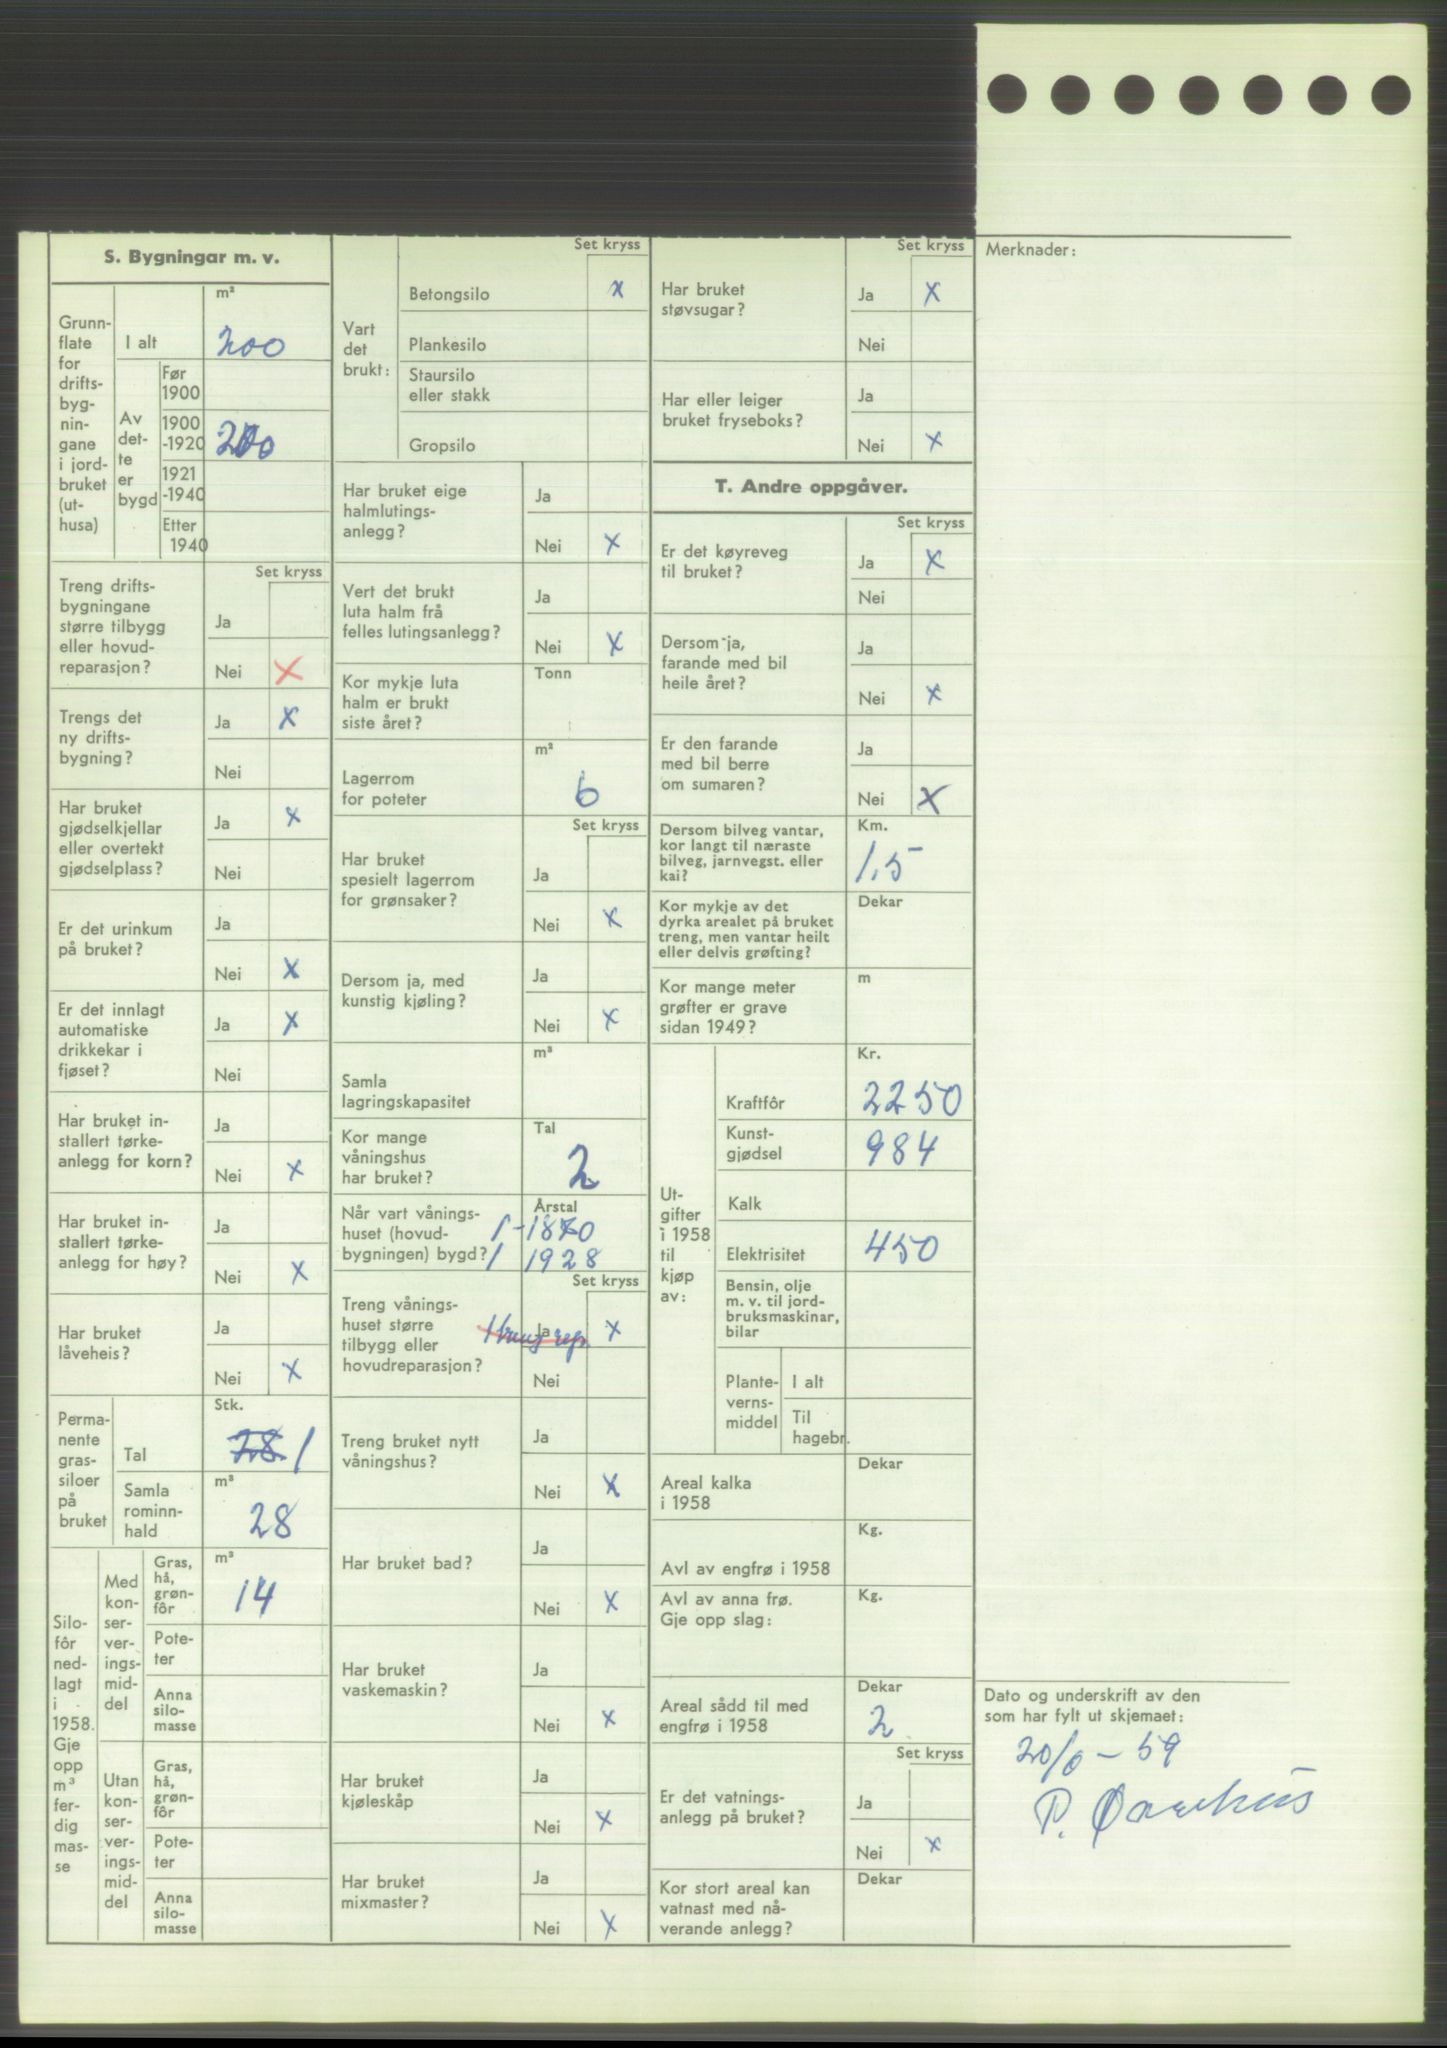 S. Bygningar m. v.
Grunn-
flate
for
drifts-
byg-
nin-
gane
i jord-
bruket
(ut-
husa)
m²
I alt
200
Av
det-
te
er
bygd
Før
1900
1900
-1920
200
1921
-1940
Etter
1940
Set kryss
Treng drifts-
bygningane
større tilbygg
eller hovud-
reparasjon?
Ja
Nei X
Trengs det
ny drifts-
bygning?
Ja X
Nei
Har bruket
gjødselkjellar
eller overtekt
gjødselplass?
Ja X
Nei
Er det urinkum
på bruket?
Ja
Nei X
Er det innlagt
automatiske
drikkekar i
fjøset?
Ja X
Nei
Har bruket in-
stallert tørke-
anlegg for korn?
Ja
Nei X
Har bruket in-
stallert tørke-
anlegg for høy?
Ja
Nei X
Har bruket
låveheis?
Ja
Nei X
Perma-
nente
gras-
siloer
på
bruket
Stk.
Tal
28 1
Samla
rominn-
hald
m³
28
Silo-
fôr
ned-
lagt
i
1958.
Gje
opp
m³
fer-
dig
mas-
se
Med
kon-
ser-
ver-
ings-
mid-
del
Gras,
hå,
grøn-
fôr
m³
14
Pote-
ter
Anna
silo-
masse
Utan
kon-
ser-
ver-
ings-
mid-
del
Gras,
hå,
grøn-
fôr
Pote-
ter
Anna
silo-
masse
Set kryss
Vart
det
brukt:
Betongsilo X
Plankesilo
Staursilo
eller stakk
Gropsilo
Har bruket eige
halmlutings-
anlegg?
Ja
Nei X
Vert det brukt
luta halm frå
felles lutingsanlegg?
Ja
Nei X
Kor mykje luta
halm er brukt
siste året?
Tonn
Lagerrom
for poteter
m²
6
Set kryss
Har bruket
spesielt lagerrom
for grønsaker?
Ja
Nei X
Dersom ja, med
kunstig kjøling?
Ja
Nei X
Samla
lagringskapasitet
m³
Kor mange
våningshus
har bruket?
Tal
2
Når vart vånings-
huset (hovud-
bygningen) bygd?
Årstal
1-1870
1 1928
Set kryss
Treng vånings-
huset større
tilbygg eller
hovudreparasjon?
Ja X
Nei
Treng bruket nytt
våningshus?
Ja
Nei X
Har bruket bad?
Ja
Nei X
Har bruket
vaskemaskin?
Ja
Nei X
Har bruket
kjøleskåp
Ja
Nei X
Har bruket
mixmaster?
Ja
Nei X
Set kryss
Har bruket
støvsugar?
Ja X
Nei
Har eller leiger
bruket fryseboks?
Ja
Nei X
T. Andre oppgåver.
Set kryss
Er det køyreveg
til bruket?
Ja X
Nei
Dersom ja,
farande med bil
heile året?
Ja
Nei X
Er den farande
med bil berre
om sumaren?
Ja
Nei X
Dersom bilveg vantar,
kor langt til næraste
bilveg, jarnvegst. eller
kai?
Km.
1,5
Kor mykje av det
dyrka arealet på bruket
treng, men vantar heilt
eller delvis grøfting?
Dekar
Kor mange meter
grøfter er grave
sidan 1949?
m
Ut-
gifter
i 1958
til
kjøp
av:
Kr.
Kraftfôr 2250
Kunst-
gjødsel 984
Kalk
Elektrisitet 450
Bensin, olje
m. v. til jord-
bruksmaskinar,
bilar
Plante-
verns-
middel
I alt
Til
hagebr.
Areal kalka
i 1958
Dekar
Avl av engfrø i 1958
Kg.
Avl av anna frø.
Gje opp slag:
Kg.
Areal sådd til med
engfrø i 1958
Dekar
2
Set kryss
Er det vatnings-
anlegg på bruket?
Ja
Nei X
Kor stort areal kan
vatnast med nå-
verande anlegg?
Dekar
Merknader:
Dato og underskrift av den
som har fylt ut skjemaet:
20/6-59
P.